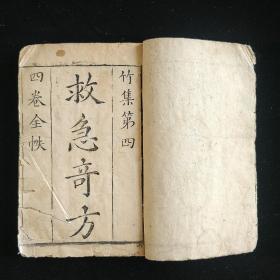 竹集第四
救急奇方
四卷全帙